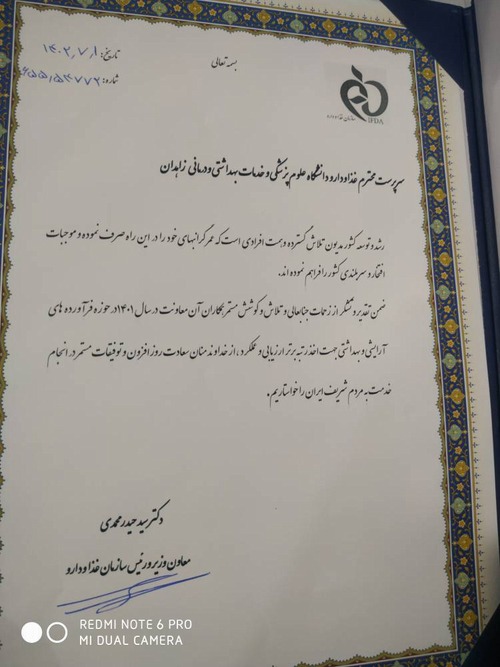 بسمه تعالی
تاریخ: ۱۴۰۲٫۷٫۱
شماره:
IFDA
سازمان غذا و دارو
سرپرست محترم غذا و دارو دانشگاه علوم پزشکی و خدمات بهداشتی و درمانی زاهدان
رشد و توسعه کشور مدیون تلاش گسترده و همت افرادی است که عمر گرانبهای خود را در این راه صرف نموده و موجبات
افتخار و سربلندی کشور را فراهم نموده اند.
ضمن تقدیر و تشکر از زحمات جنابعالی و تلاش و کوشش مستمر همکاران آن معاونت در سال ۱۴۰۱ در حوزه فرآورده های
آرایشی و بهداشتی جهت اخذ رتبه برتر ارزیابی و عملکرد، از خداوند منان سعادت روز افزون و توفیقات مستمر در انجام
خدمت به مردم شریف ایران را خواستاریم.
دکتر سید حیدر محمدی
معاون وزیر و رئیس سازمان غذا و دارو
REDMI NOTE 6 PRO
MI DUAL CAMERA